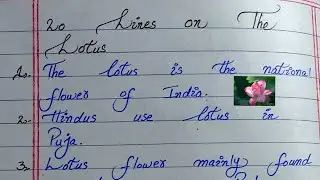 20 Lines on The
Lotus
1. The lotus is the national
flower of India.
2. Hindus use lotus in
Puja.
3. Lotus flower mainly found